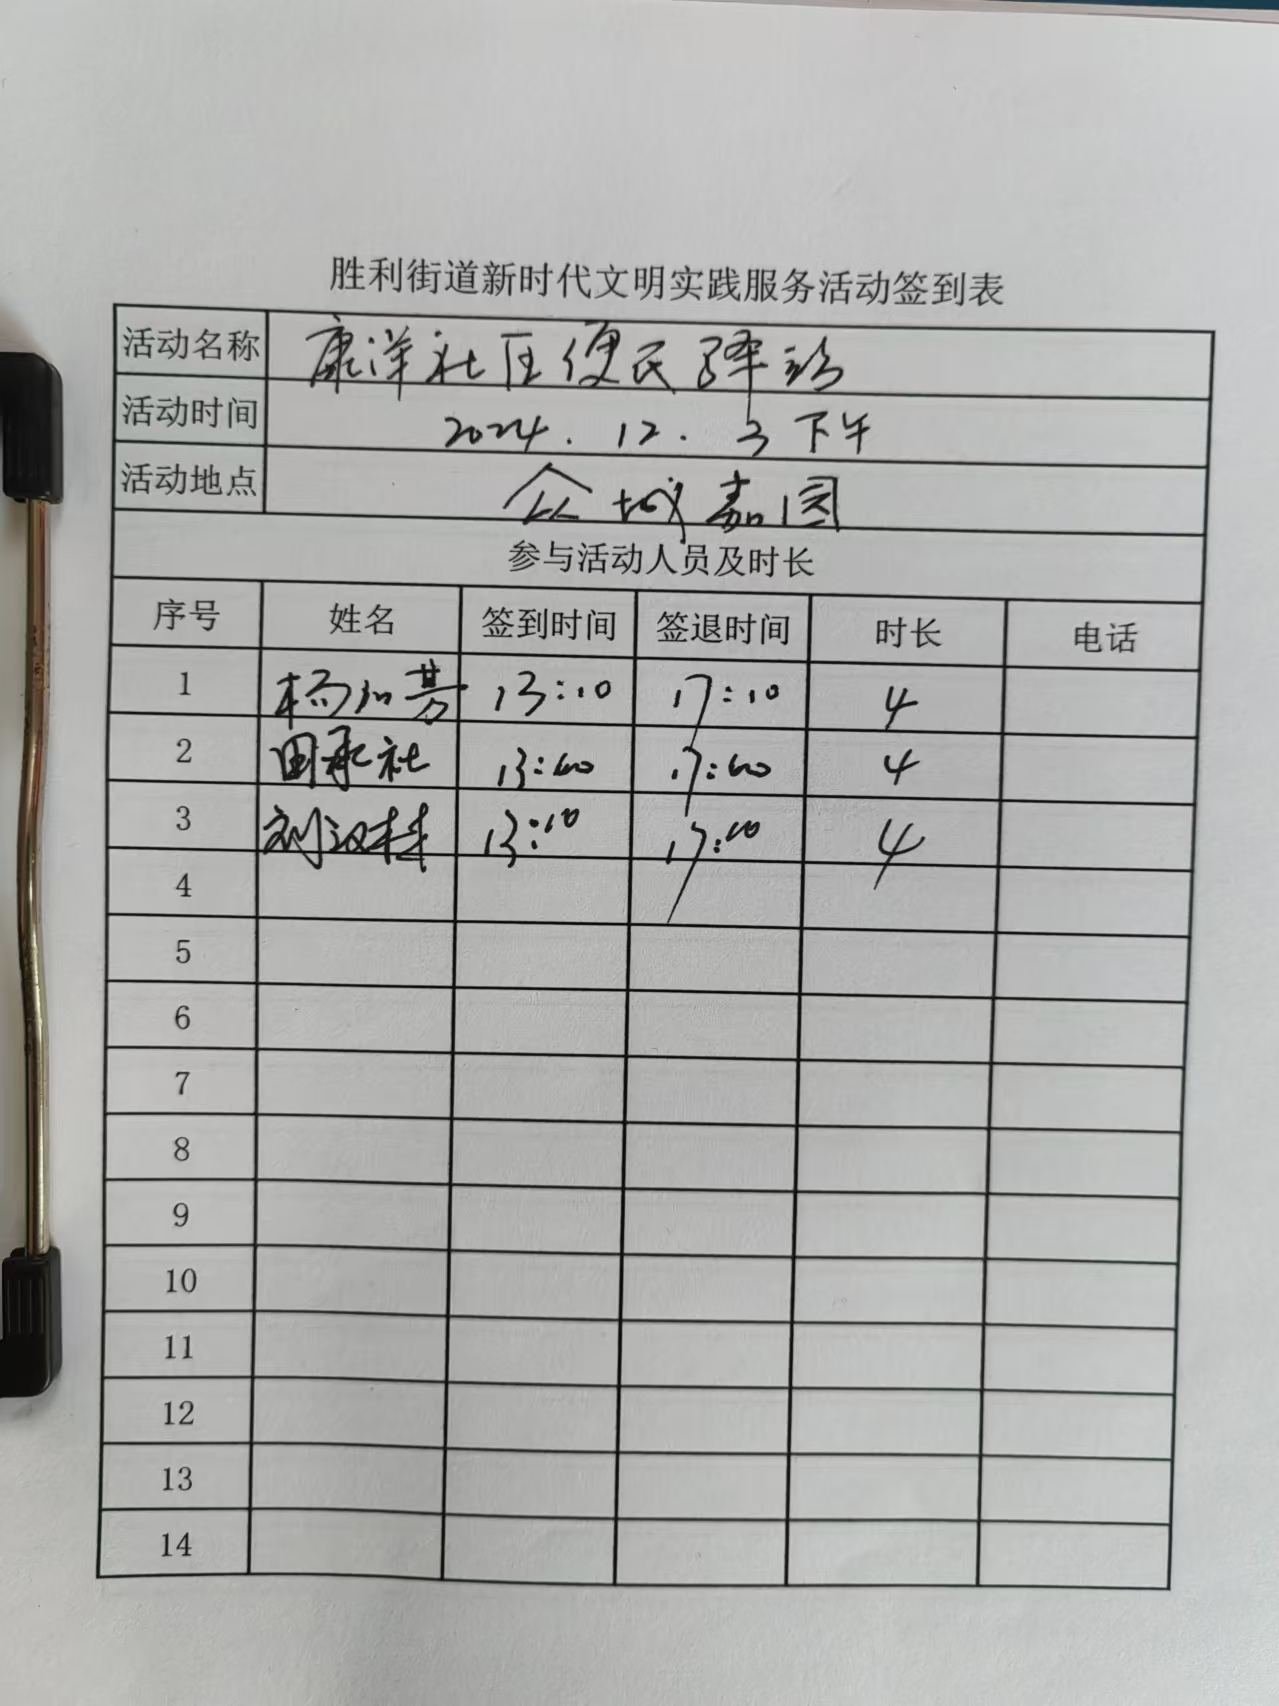 胜利街道新时代文明实践服务活动签到表
活动名称 康洋社区便民驿站
活动时间 2024.12.3下午
活动地点 众城嘉园
参与活动人员及时长
序号 姓名 签到时间 签退时间 时长 电话
1 13:10 17:10 4
2 田承社 4
3 刘汉林 13:10 17:10 4
4
5
6
7
8
9
10
11
12
13
14